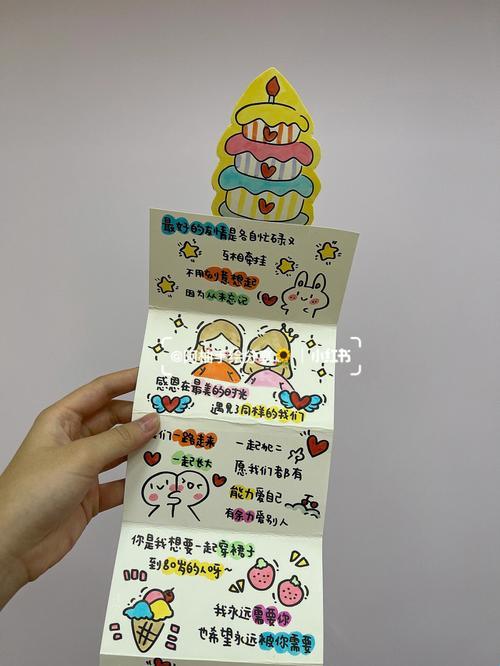 最好的友情是各自忙碌又
互相牵挂
不用刻意想起
因为从未忘记
小红书
感恩在最美的时光
遇见了同样的我们
我们一路走来
一起长大
一起犯二
愿我们都有
能力爱自己
有余力爱别人
你是我想要一起穿裙子
到80岁的人呀~
我永远需要你
也希望永远被你需要